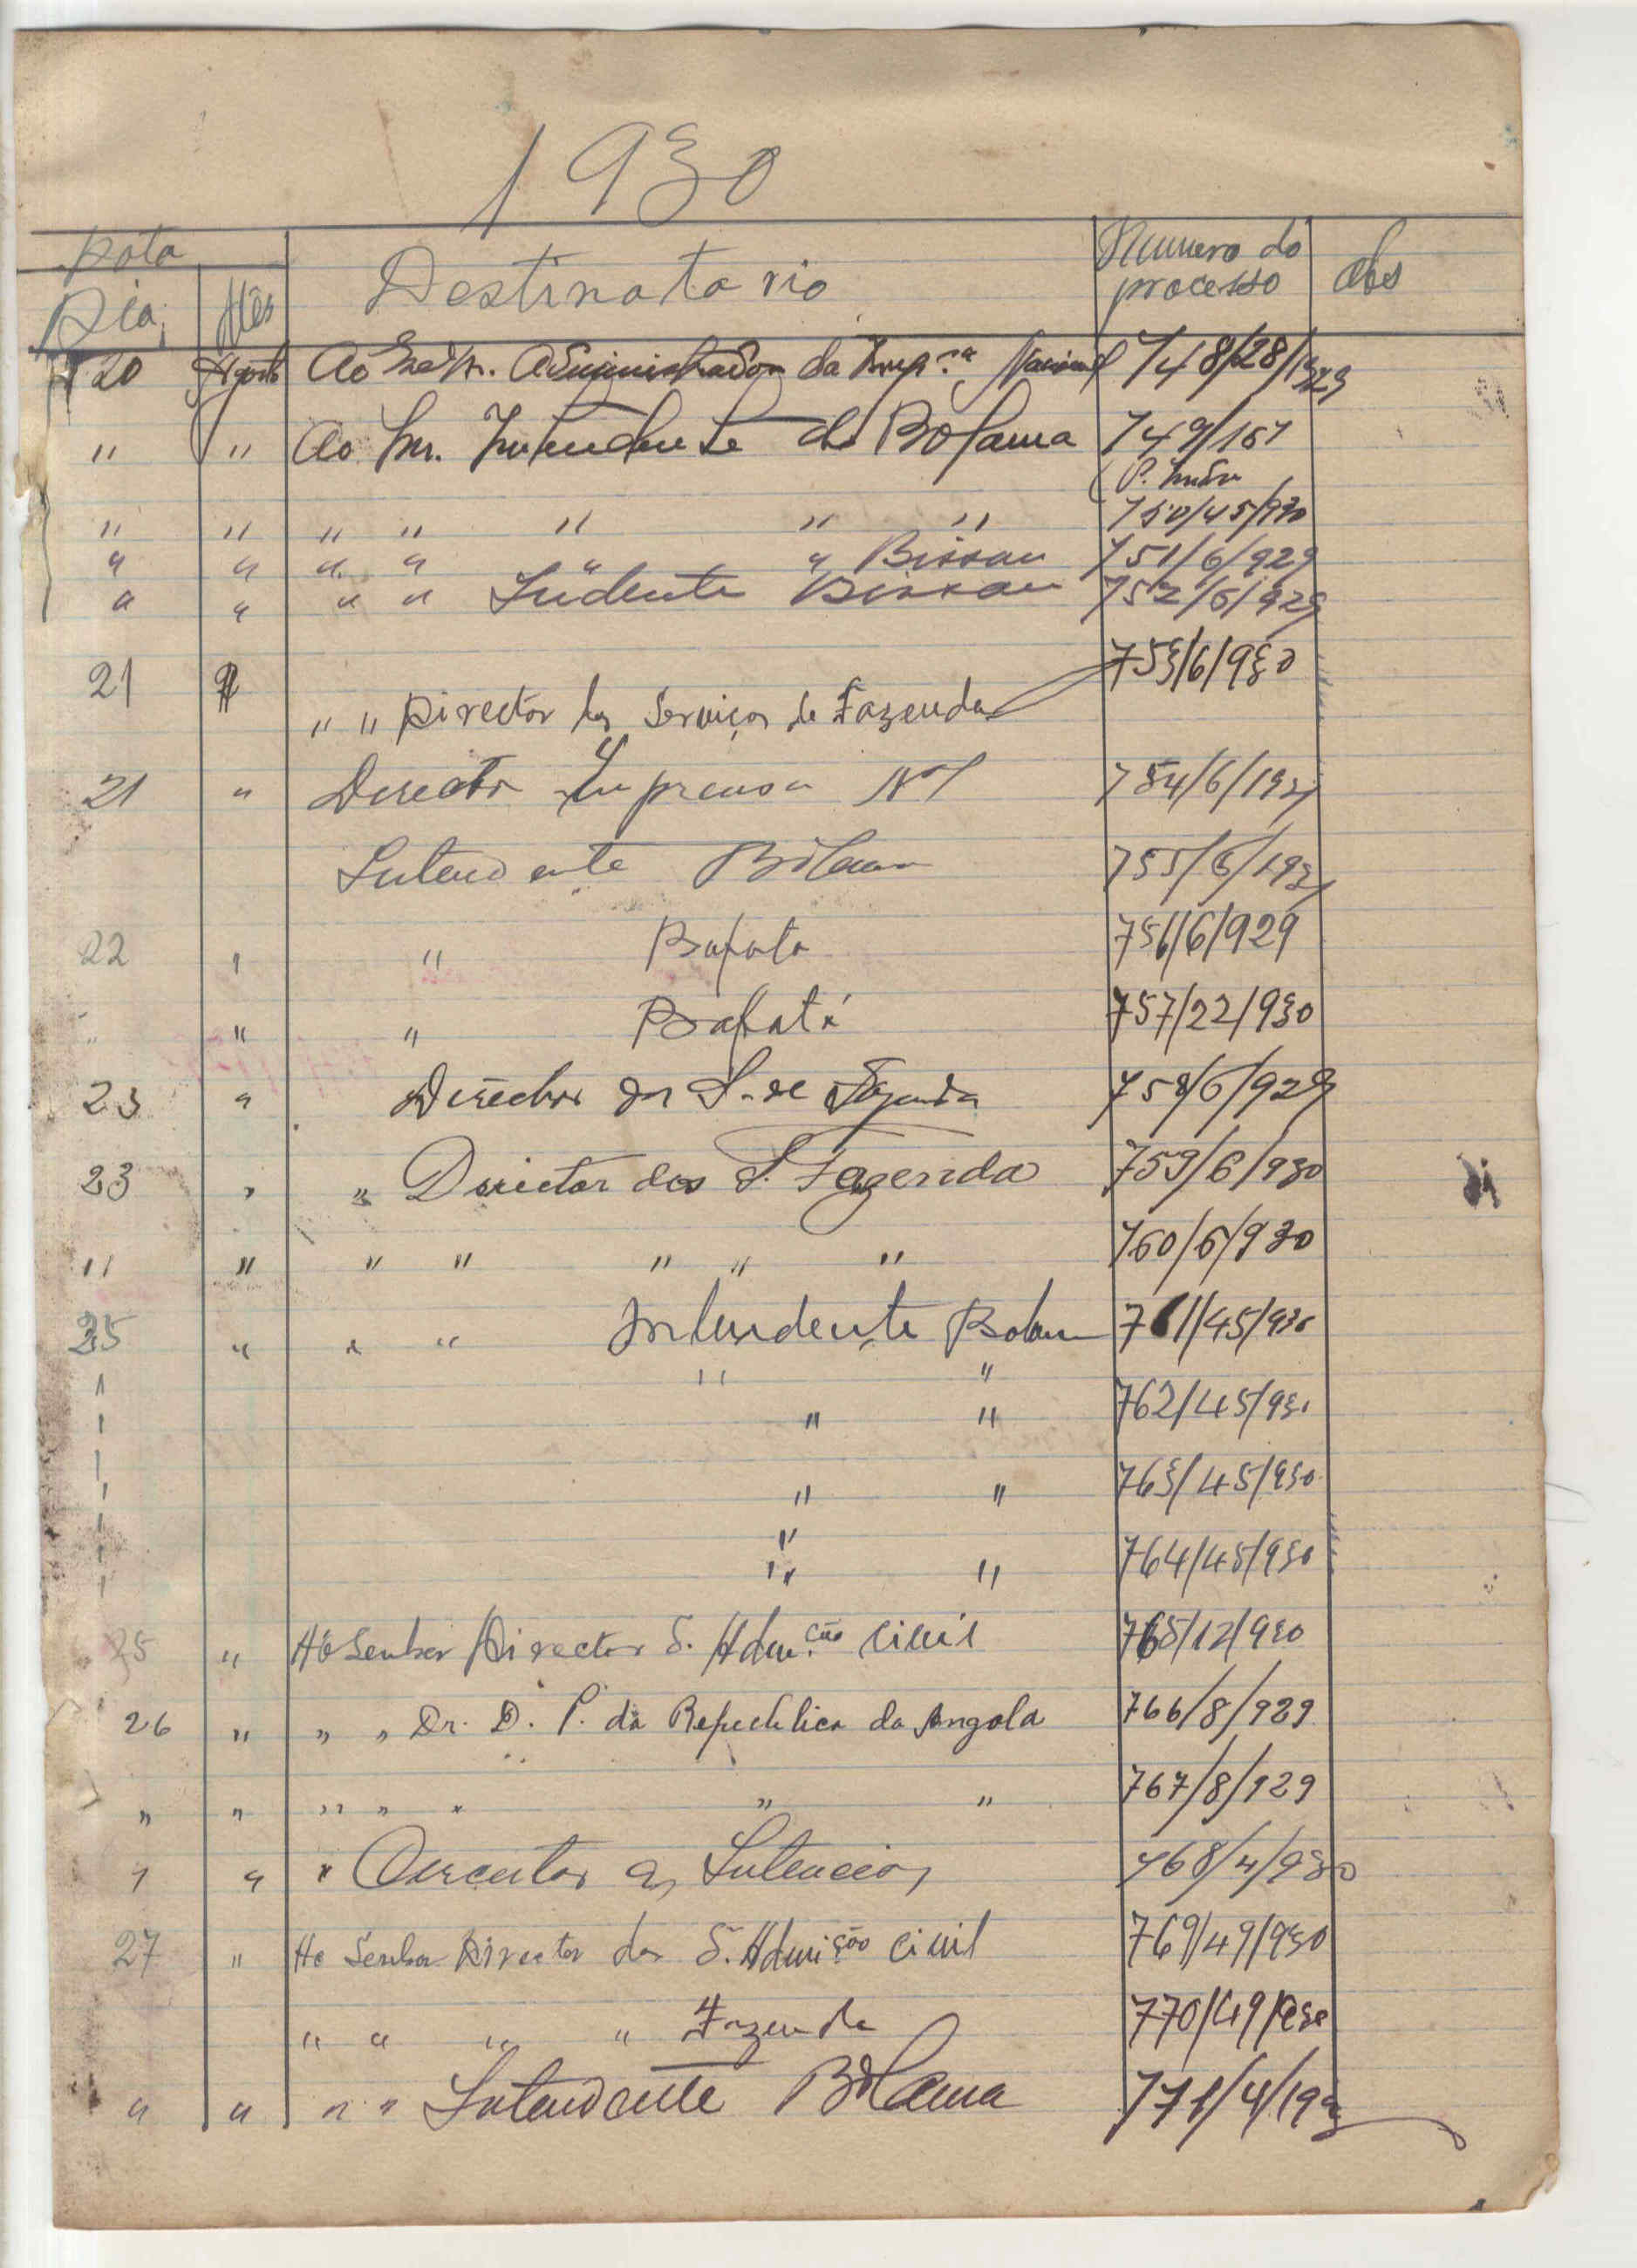 1930
Data
Destinatario
Numero do processo
obs
Dia
Mês
20 Agosto Ao Exmo Sr. Administrador da Impr.ª Nacional 748/28/1929
" " Ao Snr. Intendente de Bolama 749/167
P. Indm
" " " " " " " 750/45/930
" " " " " " Bissau 751/6/929
" " " " Indente Bissau 752/6/929
21 " 753/6/930
" " Director dos Serviços de Fazenda
21 " Director Imprensa Nal 754/6/193
Intendente Bolama 755/6/193
22 " " Bafata 756/6/929
" " " Bafatá 757/22/930
23 " Director dos S. de Fazenda 758/6/929
23 " " Director dos S. Fazenda 759/6/930
" " " " " " " 760/6/930
25 " " " Intendente Bolama 761/45/930
" "
" " 762/45/930
" " 763/45/930
"
" " 764/45/930
25 " Ao Senhor Director S. Adm.ção Civil 765/12/930
26 " " " Dr. D. P. da Republica da Angola 766/8/929
" " " " " " " 767/8/929
" " " Director 768/4/930
27 " Ao Senhor Director dos S. Admição Civil 769/49/930
" " " " Fazenda 770/49/930
" " " " Intendente Bolama 771/4/193